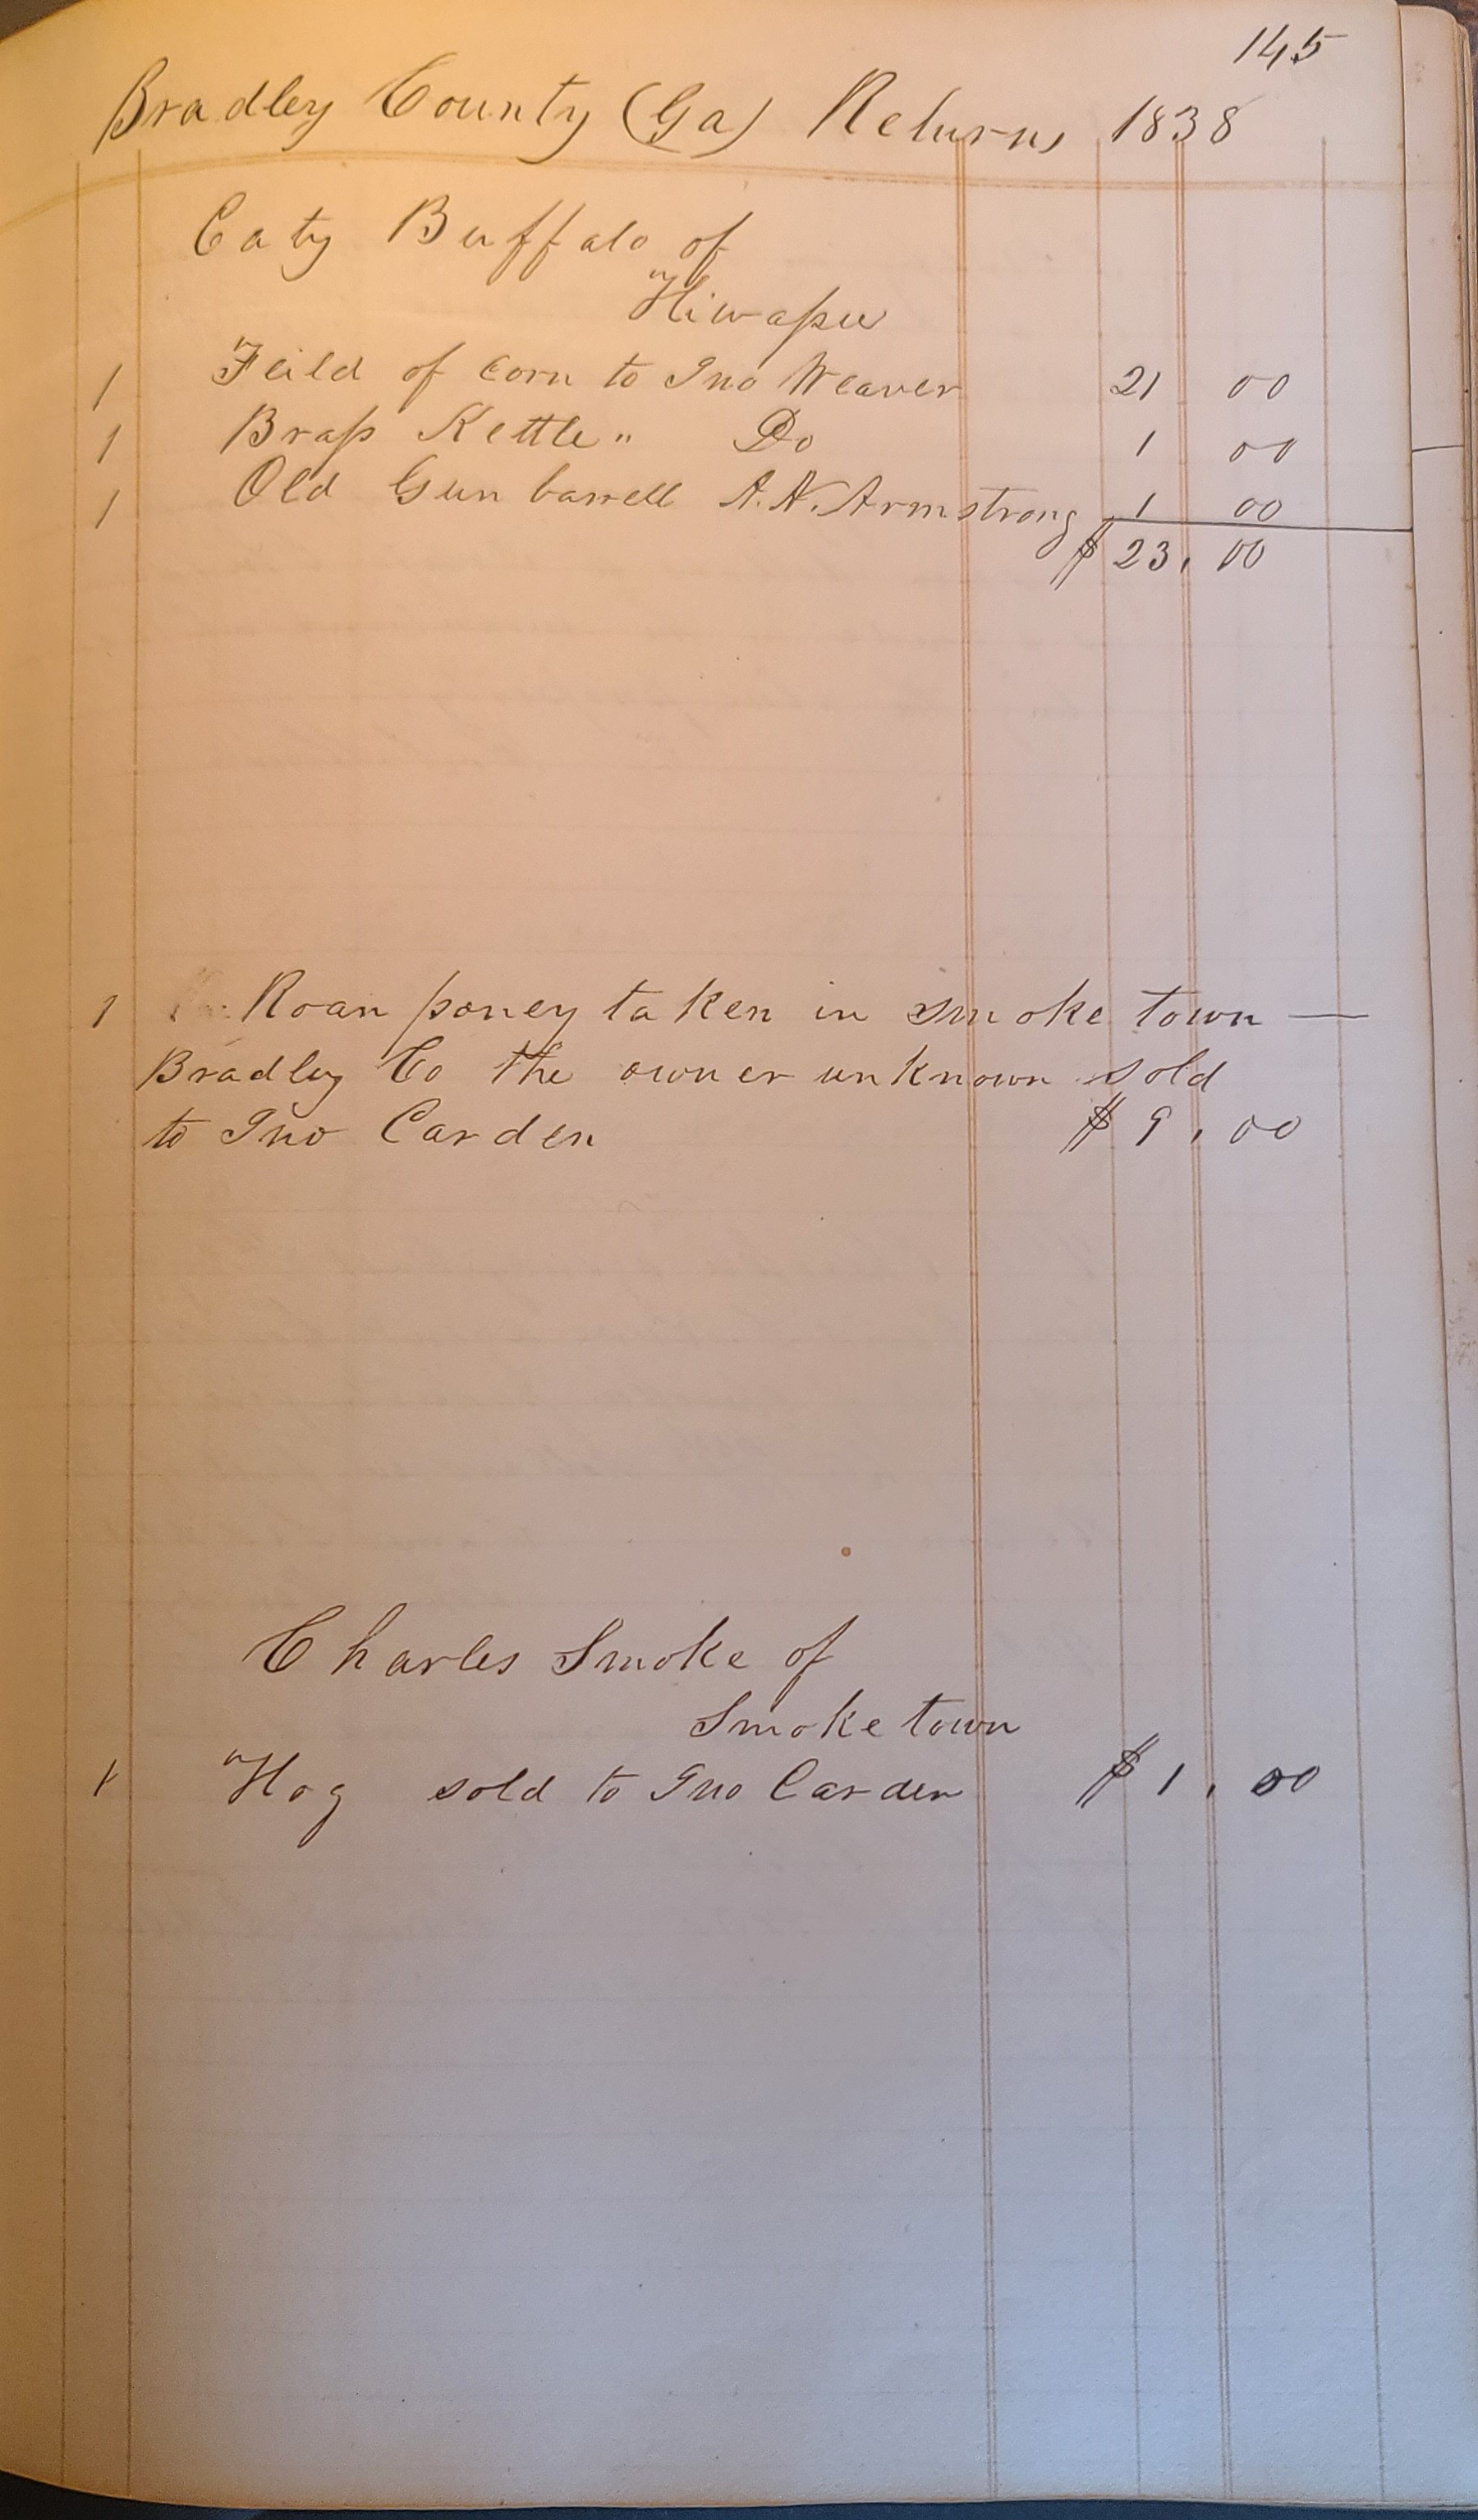 145
Bradley County (Ga) Returns 1838
Caty Buffalo of
Hiwassee
1 Feild of corn to Jno Weaver 21 00
1 Brass Kettle " Do 1 00
1 Old Gun barrell A.N. Armstrong 1 00
$23.00
1 Roan poney taken in Smoke town —
Bradley Co the owner unknown sold
to Jno Carden $9.00
Charles Smoke of
Smoke town
1 Hog sold to Jno Carden $1.00